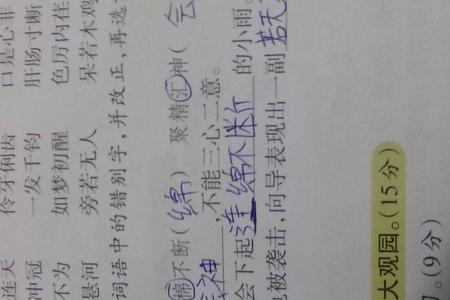 连天 伶牙俐齿 口是心非
冲冠 一发千钧 肝肠寸断
不为 如梦初醒 色厉内荏
悬河 旁若无人 呆若木鸡
词语中的错别字,并改正,再选
棉不断(绵) 聚精汇神(会
神 不能三心二意。
会下起连绵不断的小雨。
被袭击,向导表现出一副若无
大观园。(15分)
。(9分)